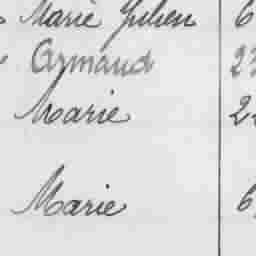 Marie Julien 6
Armand 23
Marie 22
Marie 6